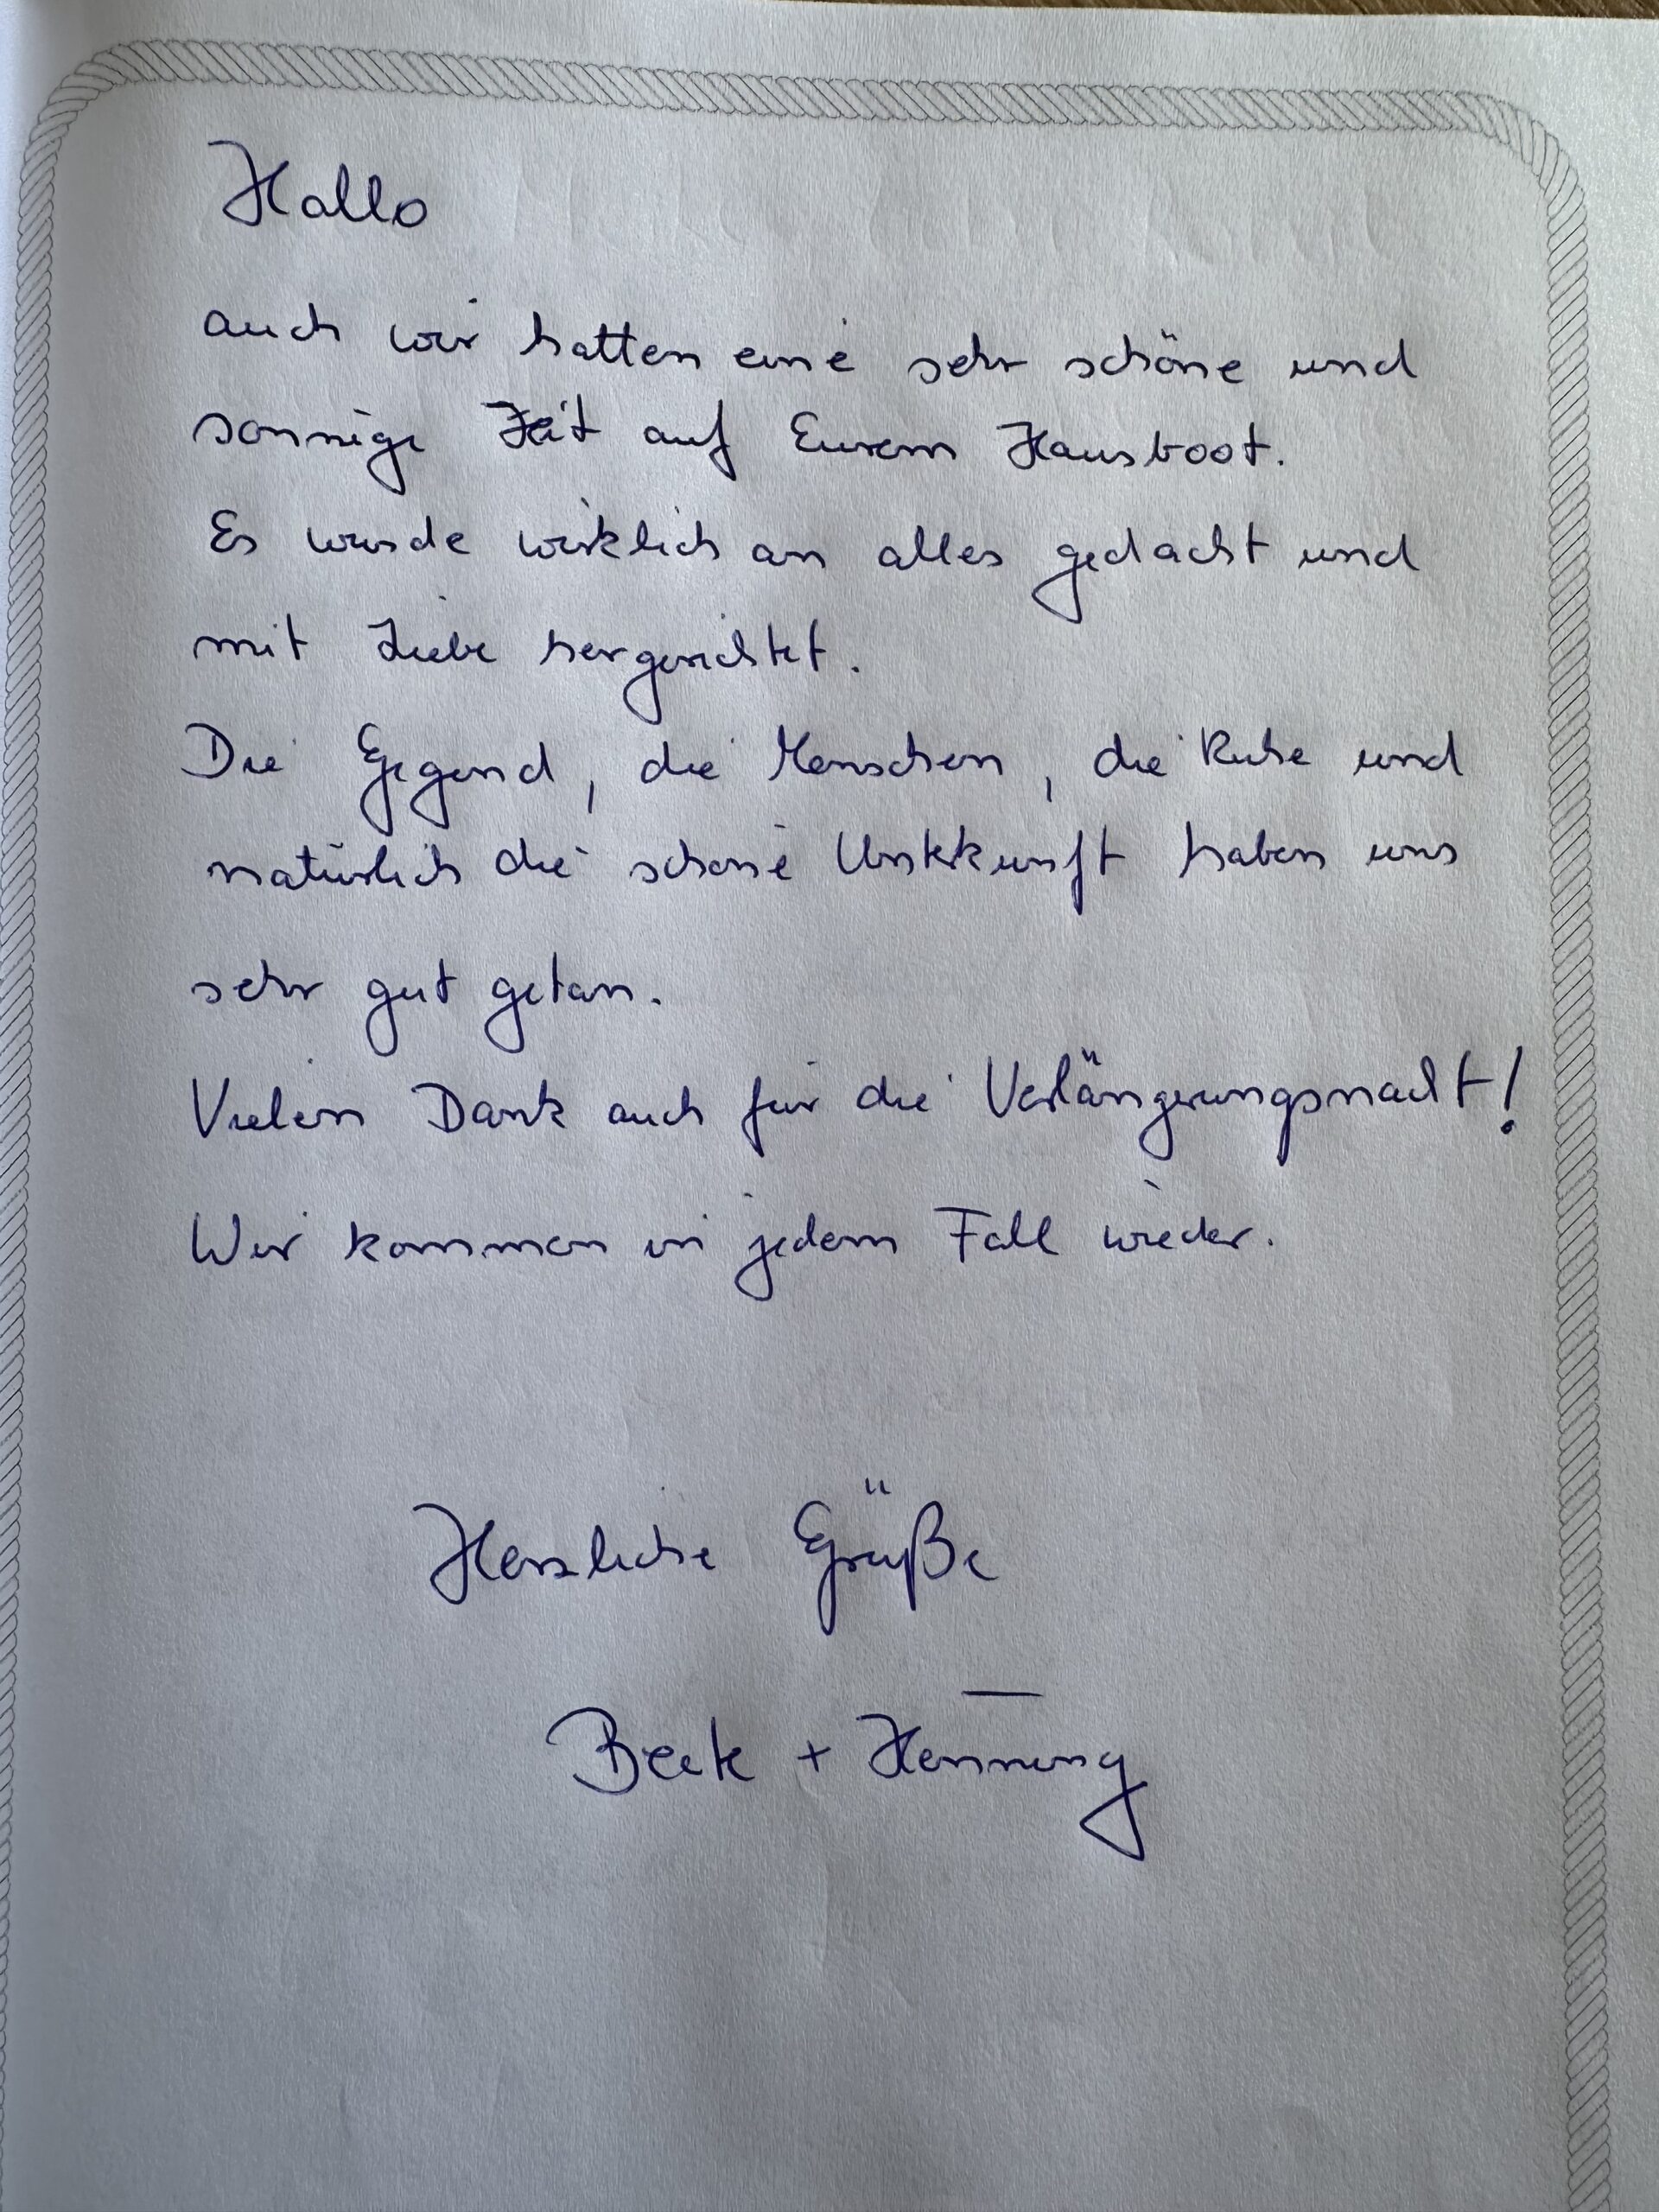 Hallo
auch wir hatten eine sehr schöne und
sonnige Zeit auf Eurem Hausboot.
Es wurde wirklich an alles gedacht und
mit Liebe hergerichtet.
Die Gegend, die Menschen, die Ruhe und
natürlich die schöne Unterkunft haben uns
sehr gut getan.
Vielen Dank auch für die Verlängerungsnacht!
Wir kommen in jedem Fall wieder.
Herzliche Grüße
+ Henning